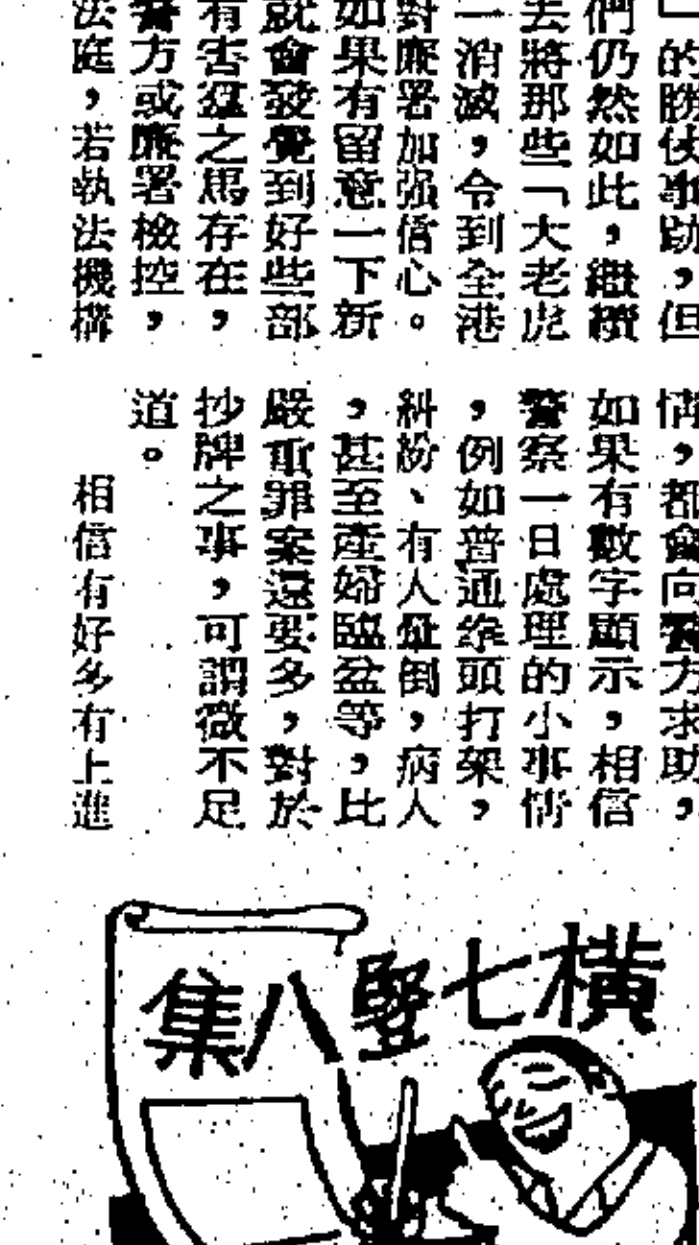 」的勝仗事跡，但
們仍然如此，繼續
去將那些「大老虎
一消滅，令到全港
對廉署加强信心。
如果有留意一下新
就會發覺到好些部
有害羣之馬存在，
警方或廉署檢控，
法庭，若執法機構
情，都會向警方求助，
如果有數字顯示，相信
警察一日處理的小事情
，例如普通街頭打架，
糾紛、有人暈倒，病人
，甚至產婦臨盆等，比
嚴重罪案還要多，對於
抄牌之事，可謂微不足
道。
相信有好多有上進
橫七豎八集